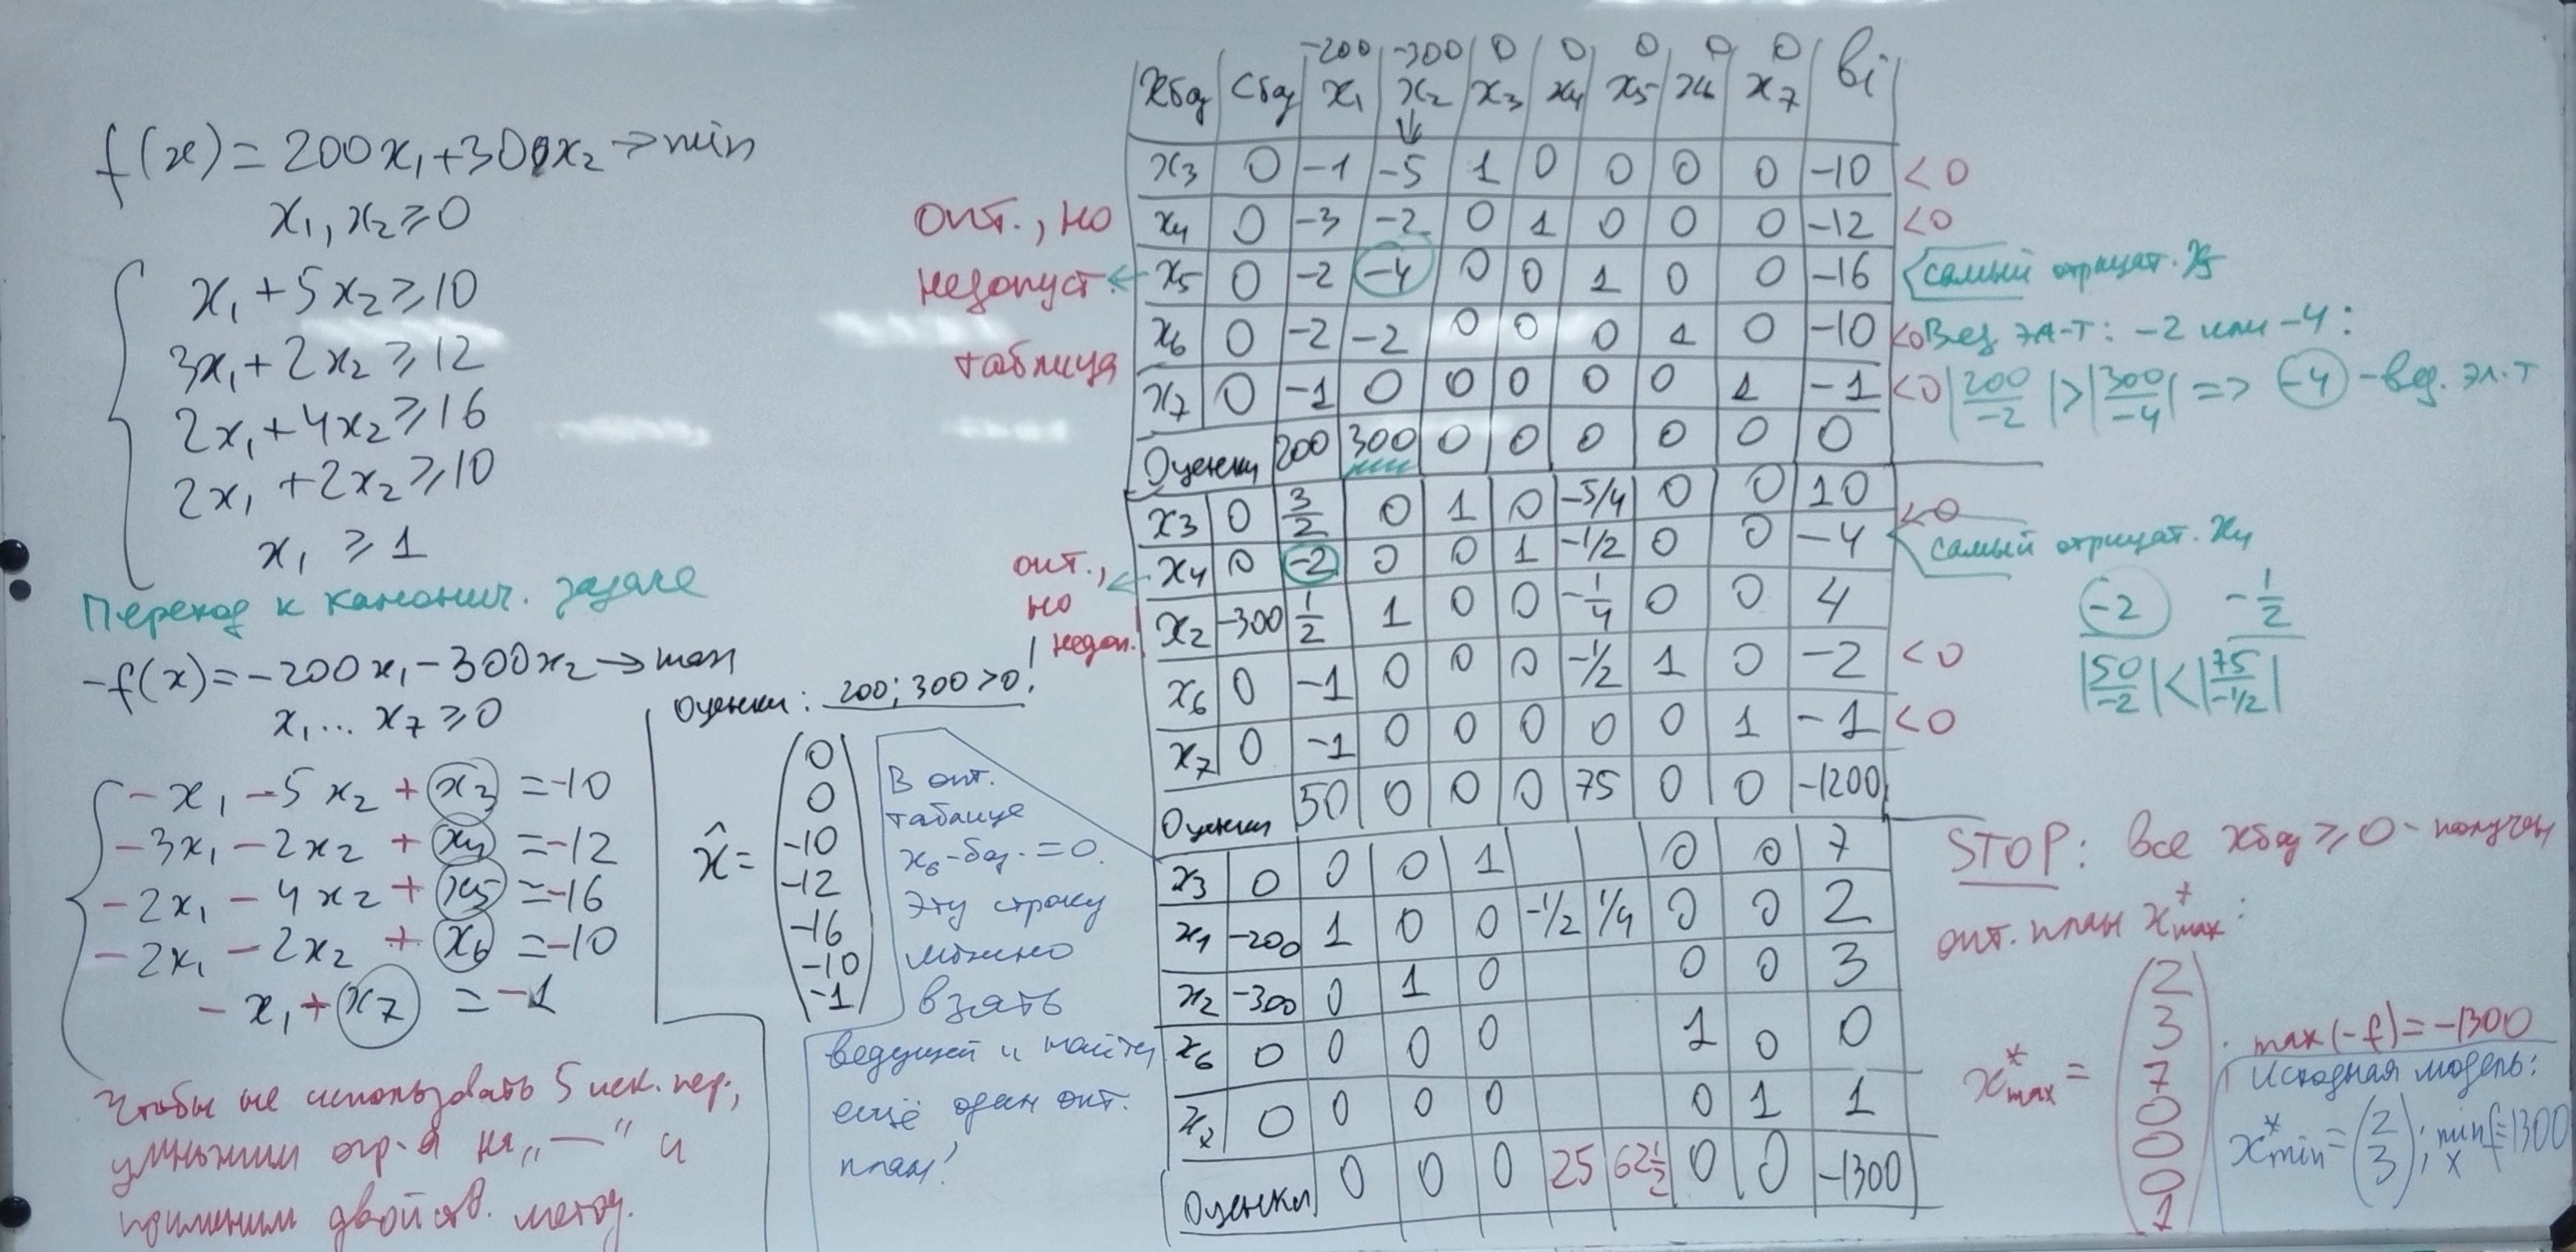 f(x) = 200x₁+300x₂ → min
x₁, x₂ ≥ 0
x₁ + 5x₂ ≥ 10
3x₁ + 2x₂ ≥ 12
2x₁ + 4x₂ ≥ 16
2x₁ + 2x₂ ≥ 10
x₁ ≥ 1
Переход к канонич. задаче
-f(x) = -200x₁ - 300x₂ → max
x₁... x₇ ≥ 0
- x₁ - 5x₂ + x₃ = -10
- 3x₁ - 2x₂ + x₄ = -12
- 2x₁ - 4x₂ + x₅ = -16
- 2x₁ - 2x₂ + x₆ = -10
- x₁ + x₇ = -1
Чтобы не использовать 5 иск. пер.,
умножим огр-я на „—“ и
применим двойств. метод.
Оценки: 200; 300 > 0!
x̂ =
0
0
-10
-12
-16
-10
-1
В опт.
таблице
x₆-баз. = 0.
Эту строку
можно
взять
ведущей и найти
ещё один опт.
план!
опт., но
недопуст.
таблица
опт.,
но
недоп.
-200 -300 0 0 0 0 0
xбаз Cбаз x₁ x₂ x₃ x₄ x₅ x₆ x₇ bi
x₃ 0 -1 -5 1 0 0 0 0 -10 <0
x₄ 0 -3 -2 0 1 0 0 0 -12 <0
x₅ 0 -2 -4 0 0 1 0 0 -16
x₆ 0 -2 -2 0 0 0 1 0 -10 <0
x₇ 0 -1 0 0 0 0 0 1 -1 <0
Оценки 200 300 0 0 0 0 0 0
x₃ 0 3/2 0 1 0 -5/4 0 0 10
x₄ 0 -2 0 0 1 -1/2 0 0 -4 <0
x₂ -300 1/2 1 0 0 -1/4 0 0 4
x₆ 0 -1 0 0 0 -1/2 1 0 -2 <0
x₇ 0 -1 0 0 0 0 0 1 -1 <0
Оценки 50 0 0 0 75 0 0 -1200
x₃ 0 0 0 1 0 0 7
x₁ -200 1 0 0 -1/2 1/4 0 0 2
x₂ -300 0 1 0 0 0 3
x₆ 0 0 0 0 1 0 0
x₇ 0 0 0 0 0 1 1
Оценки 0 0 0 25 62 1/2 0 0 -1300
самый отрицат. x₅
Вед эл-т: -2 или -4:
|200/-2| > |300/-4| => -4 - вед. эл-т
самый отрицат. x₄
-2 -1/2
|50/-2| < |75/-1/2|
STOP: все xбаз ≥ 0 - получен
опт. план x*max:
x*max =
2
3
7
0
0
0
1
max(-f) = -1300
Исходная модель:
x*min = (2 3); min f = 1300
x